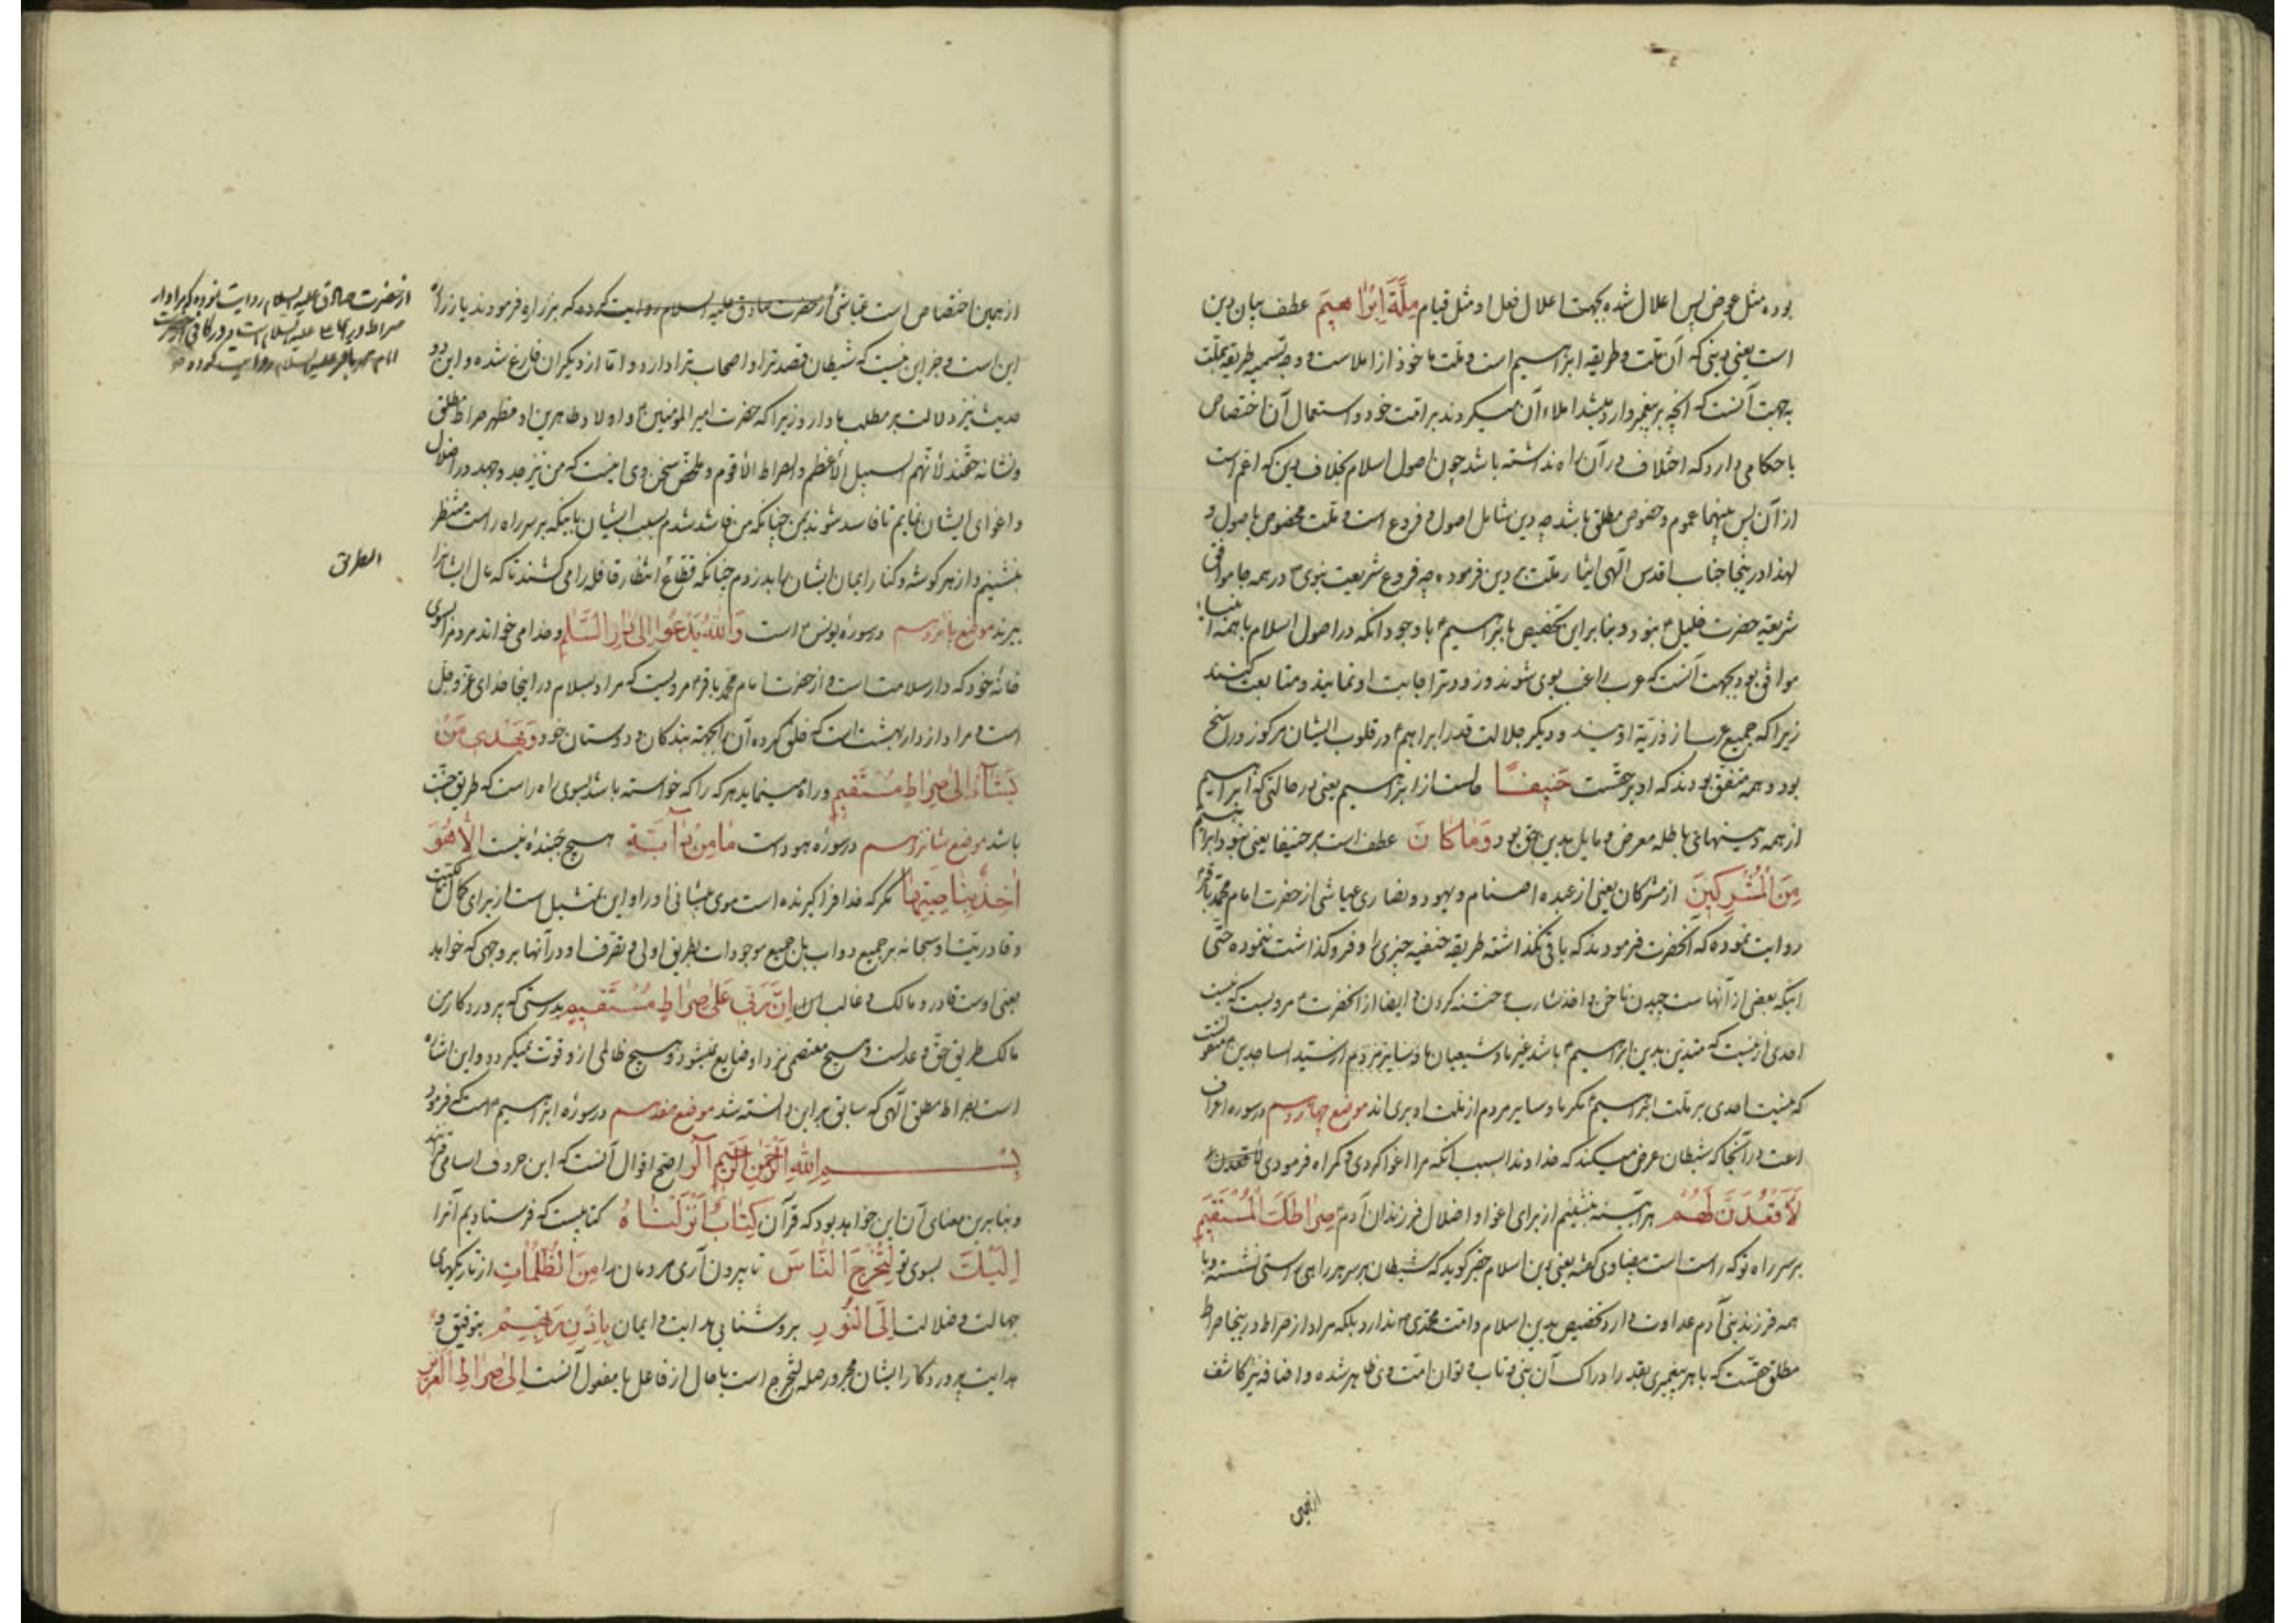 بوده مثل عوض پس اعلال شده بجهت اعلال فعل او مثل قیام مِلَّةَ اِبْرٰاهیمَ عطف بیان دین
است یعنی دینی که آن ملت و طریقه ابراهیم است و ملت ماخوذ از املاست و وجه تسمیه طریقه بملت
به جهت آنست که آنچه بر پیغمبر وارد میشد املاء آن میکردند بر امّت خود و استعمال آن اختصاص
باحکامی دارد که اختلاف در آن راه نداشته باشد چون اصول اسلام بخلاف دین که اعم است
از آن پس بینهما عموم و خصوص مطلق باشد چه دین شامل اصول و فروع است و ملت مخصوص باصول و
لهذا در اینجا جناب اقدس الهی ایثار ملت بر دین فرموده چه فروع شریعت نبوی در همه جا موافق
شریعة حضرت خلیل نبود و بنا بر این تخصیص بابراهیم با وجود آنکه در اصول اسلام با همه انبیاء
موافق بود بجهت آنست که عرب راغب بوی شوند و زودتر اجابت او نمایند و متابعت کنند
زیرا که جمیع عرب از ذریّة اویند و دیگر جلالت قدر ابراهیم در قلوب ایشان مرکوز و راسخ
بود و همه متفق بودند که او بر حقست حَنیفًا حالست از ابراهیم یعنی در حالتی که ابراهیم
از همه دینهای باطله معرض و مایل بدین حق بود وَمٰا کٰانَ عطف است بر حنیفا یعنی نبود ابراهیم
مِنَ الْمُشْرِکینَ از مشرکان یعنی از عبده اصنام و یهود و نصاری عیاشی از حضرت امام محمد باقر
روایت نموده که آنحضرت فرمودند که باقی نگذاشته طریقه حنفیه چیزی را و فروگذاشت ننموده حتّی
اینکه بعضی از آنهاست چیدن ناخن و اخذ شارب و ختنه کردن و ایضا از آنحضرت مرویست که نیست
احدی از امت که متدین بدین ابراهیم باشد غیر ما و شیعیان ما و سایر مردم از سید الساجدین منقولست
که نیست احدی بر ملت ابراهیم مگر ما و سایر مردم از ملت او بری اند موضع چهاردهم در سوره اعراف
است در آنجا که شیطان عرض میکند که خداوندا بسبب آنکه مرا اغوا کردی و گمراه فرمودی
لَاَقْعُدَنَّ لَهُمْ هر آینه بنشینم از برای اغوا و اضلال فرزندان آدم صِرٰاطَکَ الْمُسْتَقیمَ
بر سر راه تو که راست است بیضاوی گفته یعنی دین اسلام حقیر گوید که شیطان بر سر هر راه راستی نشسته و با
همه فرزند بنی آدم عداوت دارد تخصیص بدین اسلام و امت محمدی ندارد بلکه مراد از صراط در اینجا صراط
مطلق حقست که با هر پیغمبری بقدر ادراک آن نبی و تاب و توان امت وی ظاهر شده و اضافه نیز کاشف
از همین
از همین اختصاص است عیاشی از حضرت صادق علیه السلام روایت کرده که بزراره فرمودند یا زراره
این است و جز این نیست که شیطان قصد ترا و اصحاب ترا دارد و امّا از دیگران فارغ شده و این دو
حدیث نیز دلالت بر مطلب ما دارد زیرا که حضرت امیر المؤمنین و اولاد طاهرین او مظهر صراط مطلق
و نشانه حقّند لأنّهم السبیل الأعظم و الصراط الأقوم و ملخّص سخن وی اینست که من نیز جد و جهد در اضلال
و اغوای ایشان نمایم تا فاسد شوند بمن چنانکه من فاسد شدم بسبب ایشان باینکه بر سر راه راست منتظر
بنشینم و از هر گوشه و کنار ایمان ایشان را بدزدم چنانکه قطاع انتظار قافله را می کشند تا که مال ایشانرا
ببرند موضع پانزدهم در سوره یونس است وَاللّٰهُ یَدْعُوا اِلیٰ دٰارِ السَّلٰامِ و خدا می خواند مردمرا بسوی
خانه خود که دار سلامت است و از حضرت امام محمد باقر مرویست که مراد بسلام در اینجا خدای عزّ و جلّ
است و مراد از دار بهشت است که خلق کرده آن را بجهة بندگان و دوستان خود وَیَهْدی مَنْ
یَشٰآءُ اِلیٰ صِرٰاطٍ مُسْتَقیمٍ و راه مینماید هر که را که خواسته باشد بسوی راه راست که طریق جنّت
باشد موضع شانزدهم در سوره هود است مٰا مِنْ دٰآبَّةٍ هیچ جنبنده نیست اِلّٰا هُوَ
اٰخِذٌ بِنٰاصِیَتِهٰا مگر که خدا فرا گیرنده است موی پیشانی او را و این تمثیل است از برای کمال مالکیّت
و قادریّت او سبحانه بر جمیع دواب بل جمیع موجودات بطریق اولی و تصرف او در آنها بر وجهی که خواهد
یعنی اوست قادر و مالک و غالب اِنَّ رَبّی عَلیٰ صِرٰاطٍ مُسْتَقیمٍ بدرستی که پروردگار من
مالک طریق حق و عدلست و هیچ معتصمی نزد او ضایع نمیشود و هیچ ظالمی از او فوت نمیگردد و این اشاره
است بصراط مطلق الهی که سابق بر این دانسته شد موضع هفدهم در سوره ابراهیم است که فرمود
بِسْمِ اللّٰهِ الرَّحْمٰنِ الرَّحیمِ آلر اصحّ اقوال آنست که این حروف اسامی قرآنند
و بنا برین معنای آن این خواهد بود که قرآن کِتٰابٌ اَنْزَلْنٰاهُ کتابیست که فرستادیم آنرا
اِلَیْکَ بسوی تو لِتُخْرِجَ النّٰاسَ تا بیرون آری مردمان را مِنَ الظُّلُمٰاتِ از تاریکیهای
جهالت و ضلالت اِلَی النُّورِ بروشنایی هدایت و ایمان بِاِذْنِ رَبِّهِمْ بتوفیق و
هدایت پروردگار ایشان مجرور صله لتخرج است یا حال از فاعل یا مفعول آنست اِلیٰ صِرٰاطِ الْعَزیزِ
از حضرت صادق علیه السلام روایت نموده که مراد از
صراط در اینجا علی علیه السلام است و در کافی از حضرت
امام محمد باقر علیه السلام روایت کرده
الطریق